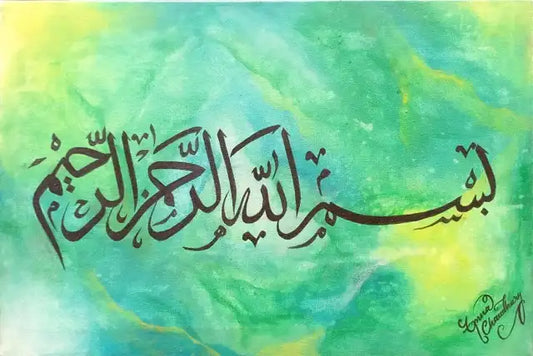 بسم الله الرحمن الرحيم
Chaudhary